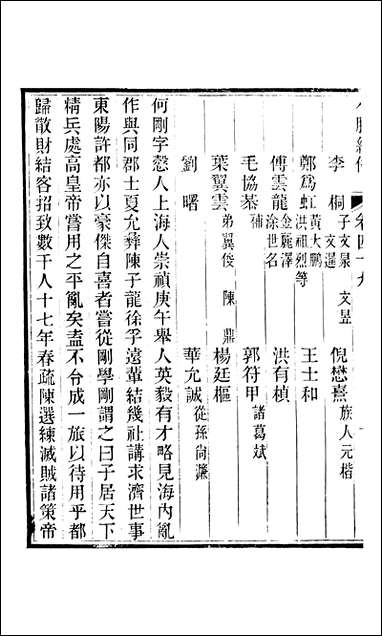 小腆紀傳 卷四十九
李桐 子文泉 文暹 文昱 倪懋熹 族人元楷
鄭爲虹 黃大鵬 洪祖烈等 王士和
傅雲龍 金麗澤 涂世名 洪有楨
毛協恭 補 郭符甲 諸葛斌
葉翼雲 弟翼俊 陳鼎 楊廷樞
劉曙 華允誠 從孫尙濂
何剛字愨人上海人崇禎庚午舉人英毅有才略見海內亂
作與同郡士夏允彝陳子龍徐孚遠輩結幾社講求濟世事
東陽許都亦以豪傑自喜者嘗從剛學剛謂之曰子居天下
精兵處高皇帝嘗用之平亂矣盍不台成一旅以待用乎都
歸散財結客招致數千人十七年春疏陳選練滅賊諸策帝